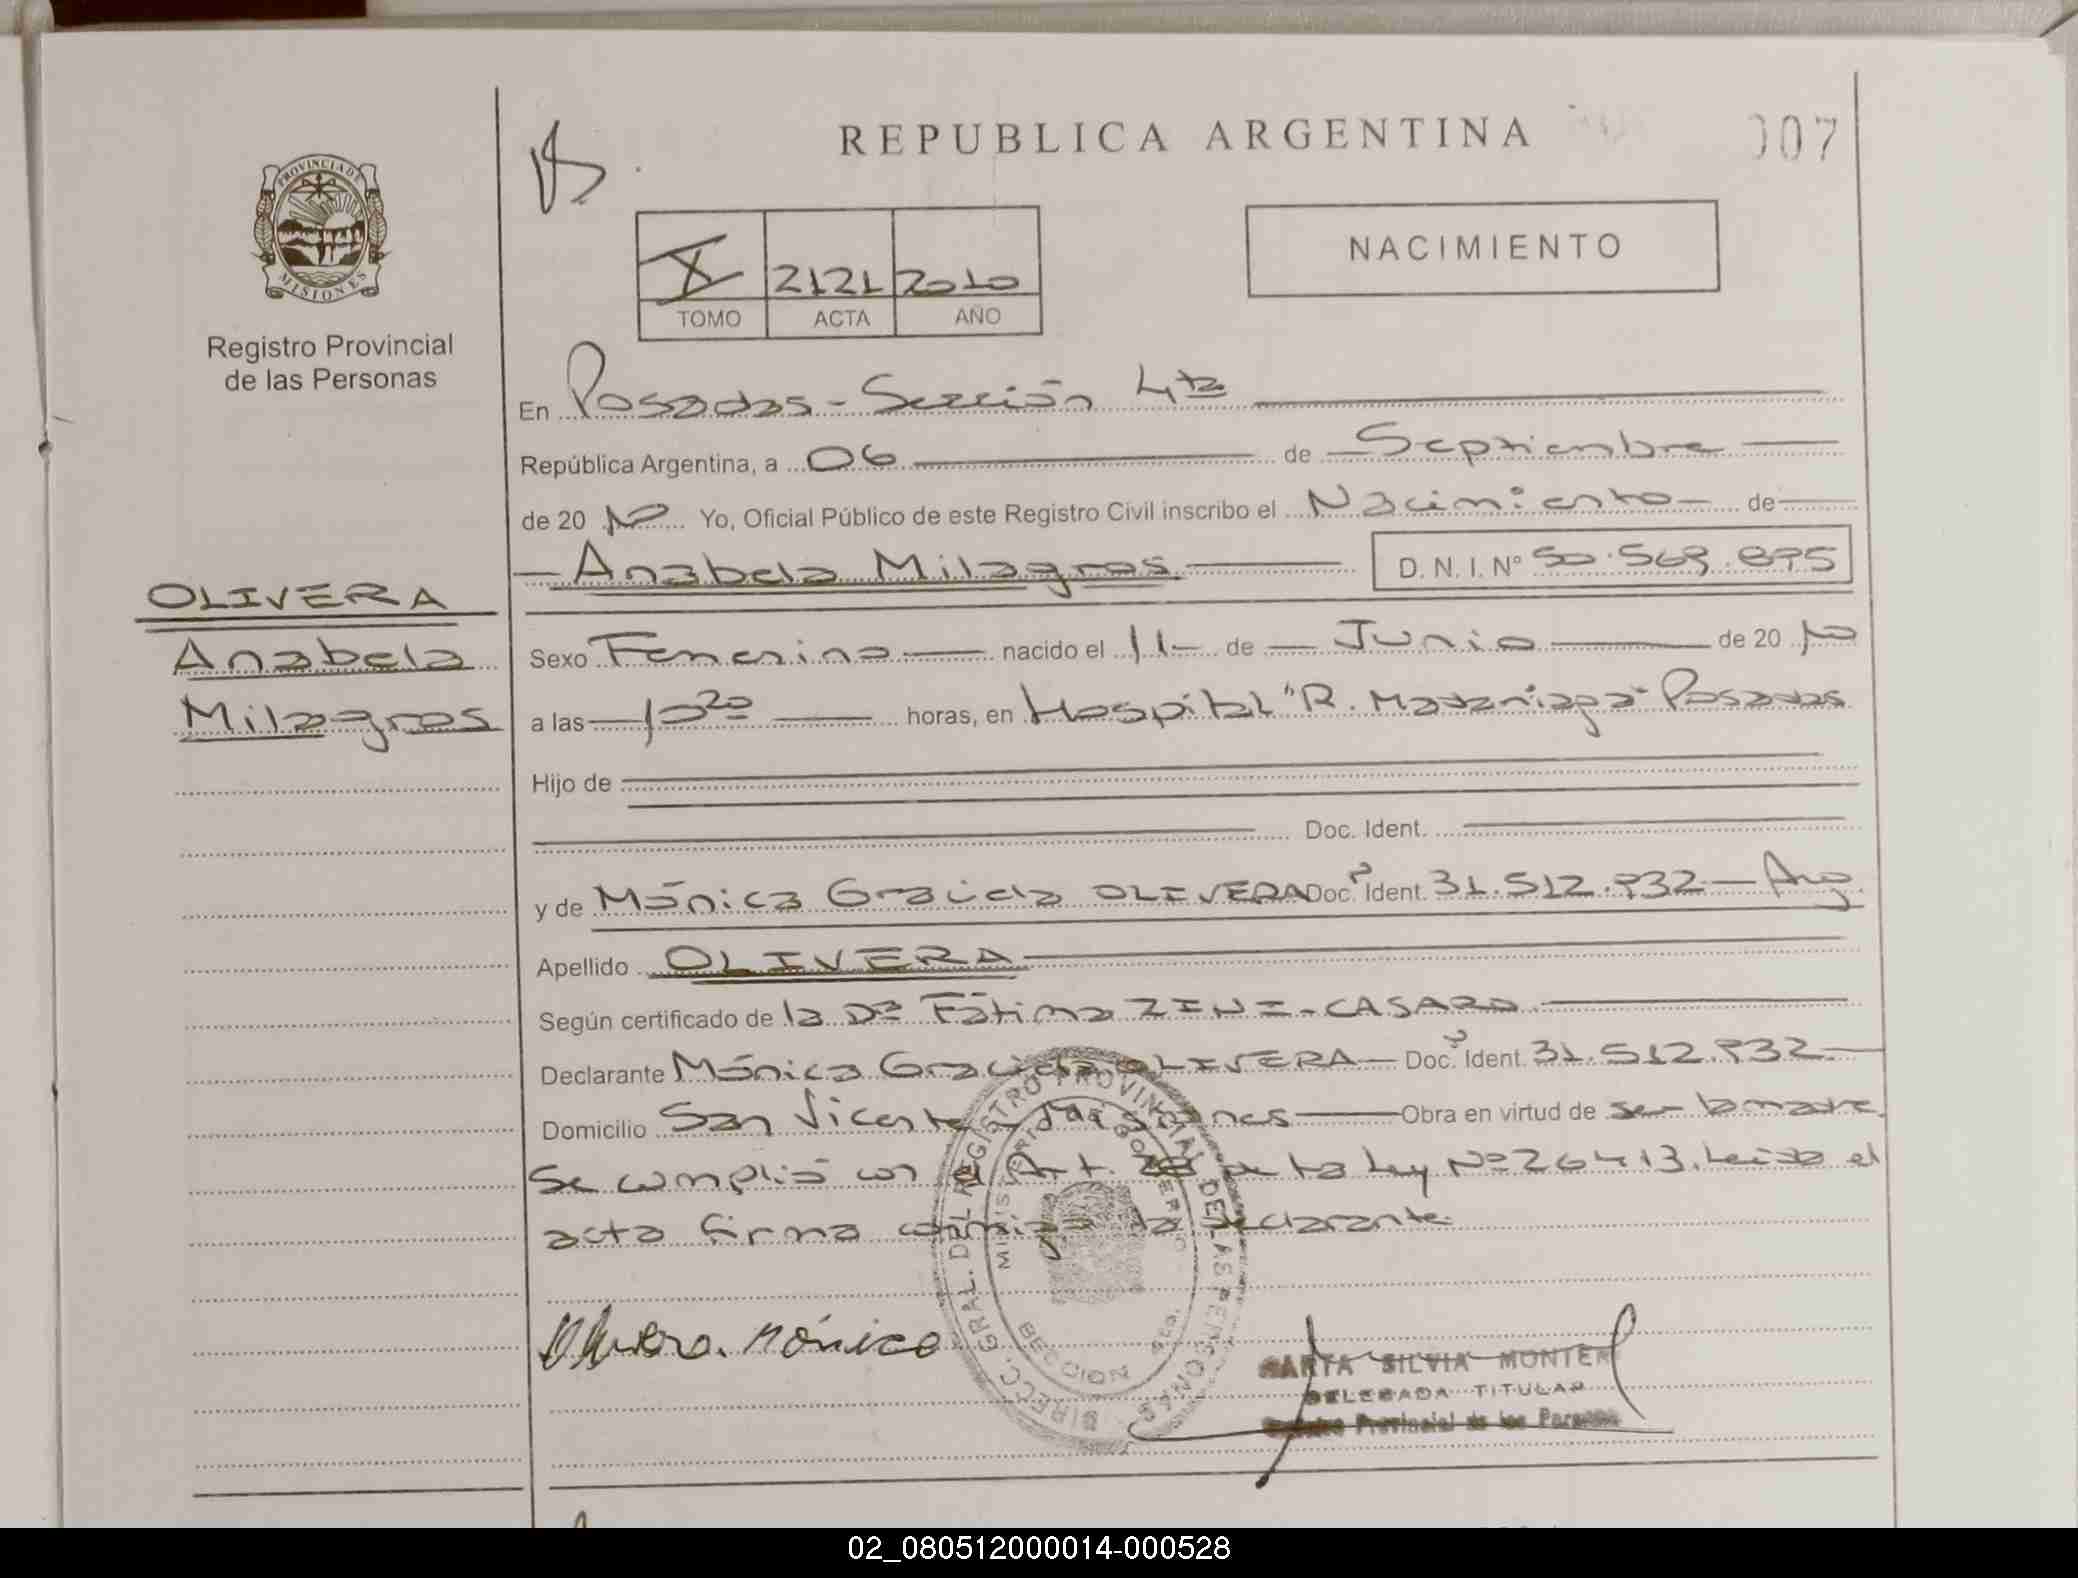 REPUBLICA ARGENTINA
007
PROVINCIA DE
MISIONES
Registro Provincial
de las Personas
X 2121 2010
TOMO ACTA AÑO
NACIMIENTO
En Posadas - Sección 4ta
República Argentina, a 06 de Septiembre
de 20 10 Yo, Oficial Público de este Registro Civil inscribo el Nacimiento de
Anabela Milagros D. N. I. Nº 50.569.895
OLIVERA
Anabela
Milagros
Sexo Femenino nacido el 11 de Junio de 20 10
a las 10 20 horas, en Hospital "R. Madariaga" Posadas
Hijo de
Doc. Ident.
y de Mónica Graciela OLIVERA Doc. Ident. 31.512.932 - Arg
Apellido OLIVERA
Según certificado de la Dra Fátima ZINI - CASARO
Declarante Mónica Graciela OLIVERA - Doc. Ident. 31.512.932
Domicilio San Vicente Misiones Obra en virtud de ser la madre.
Se cumplió con el Art. de la Ley Nº 26413. Leída el
acta firma conmigo la declarante
Olivera. Mónica
DIRECC. GRAL. DEL REGISTRO PROVINCIAL DE LAS PERSONAS
MINISTERIO GOBIERNO
SECCION
MARTA SILVIA MONTER
DELEGADA TITULAR
Registro Provincial de las Personas
02_080512000014-000528